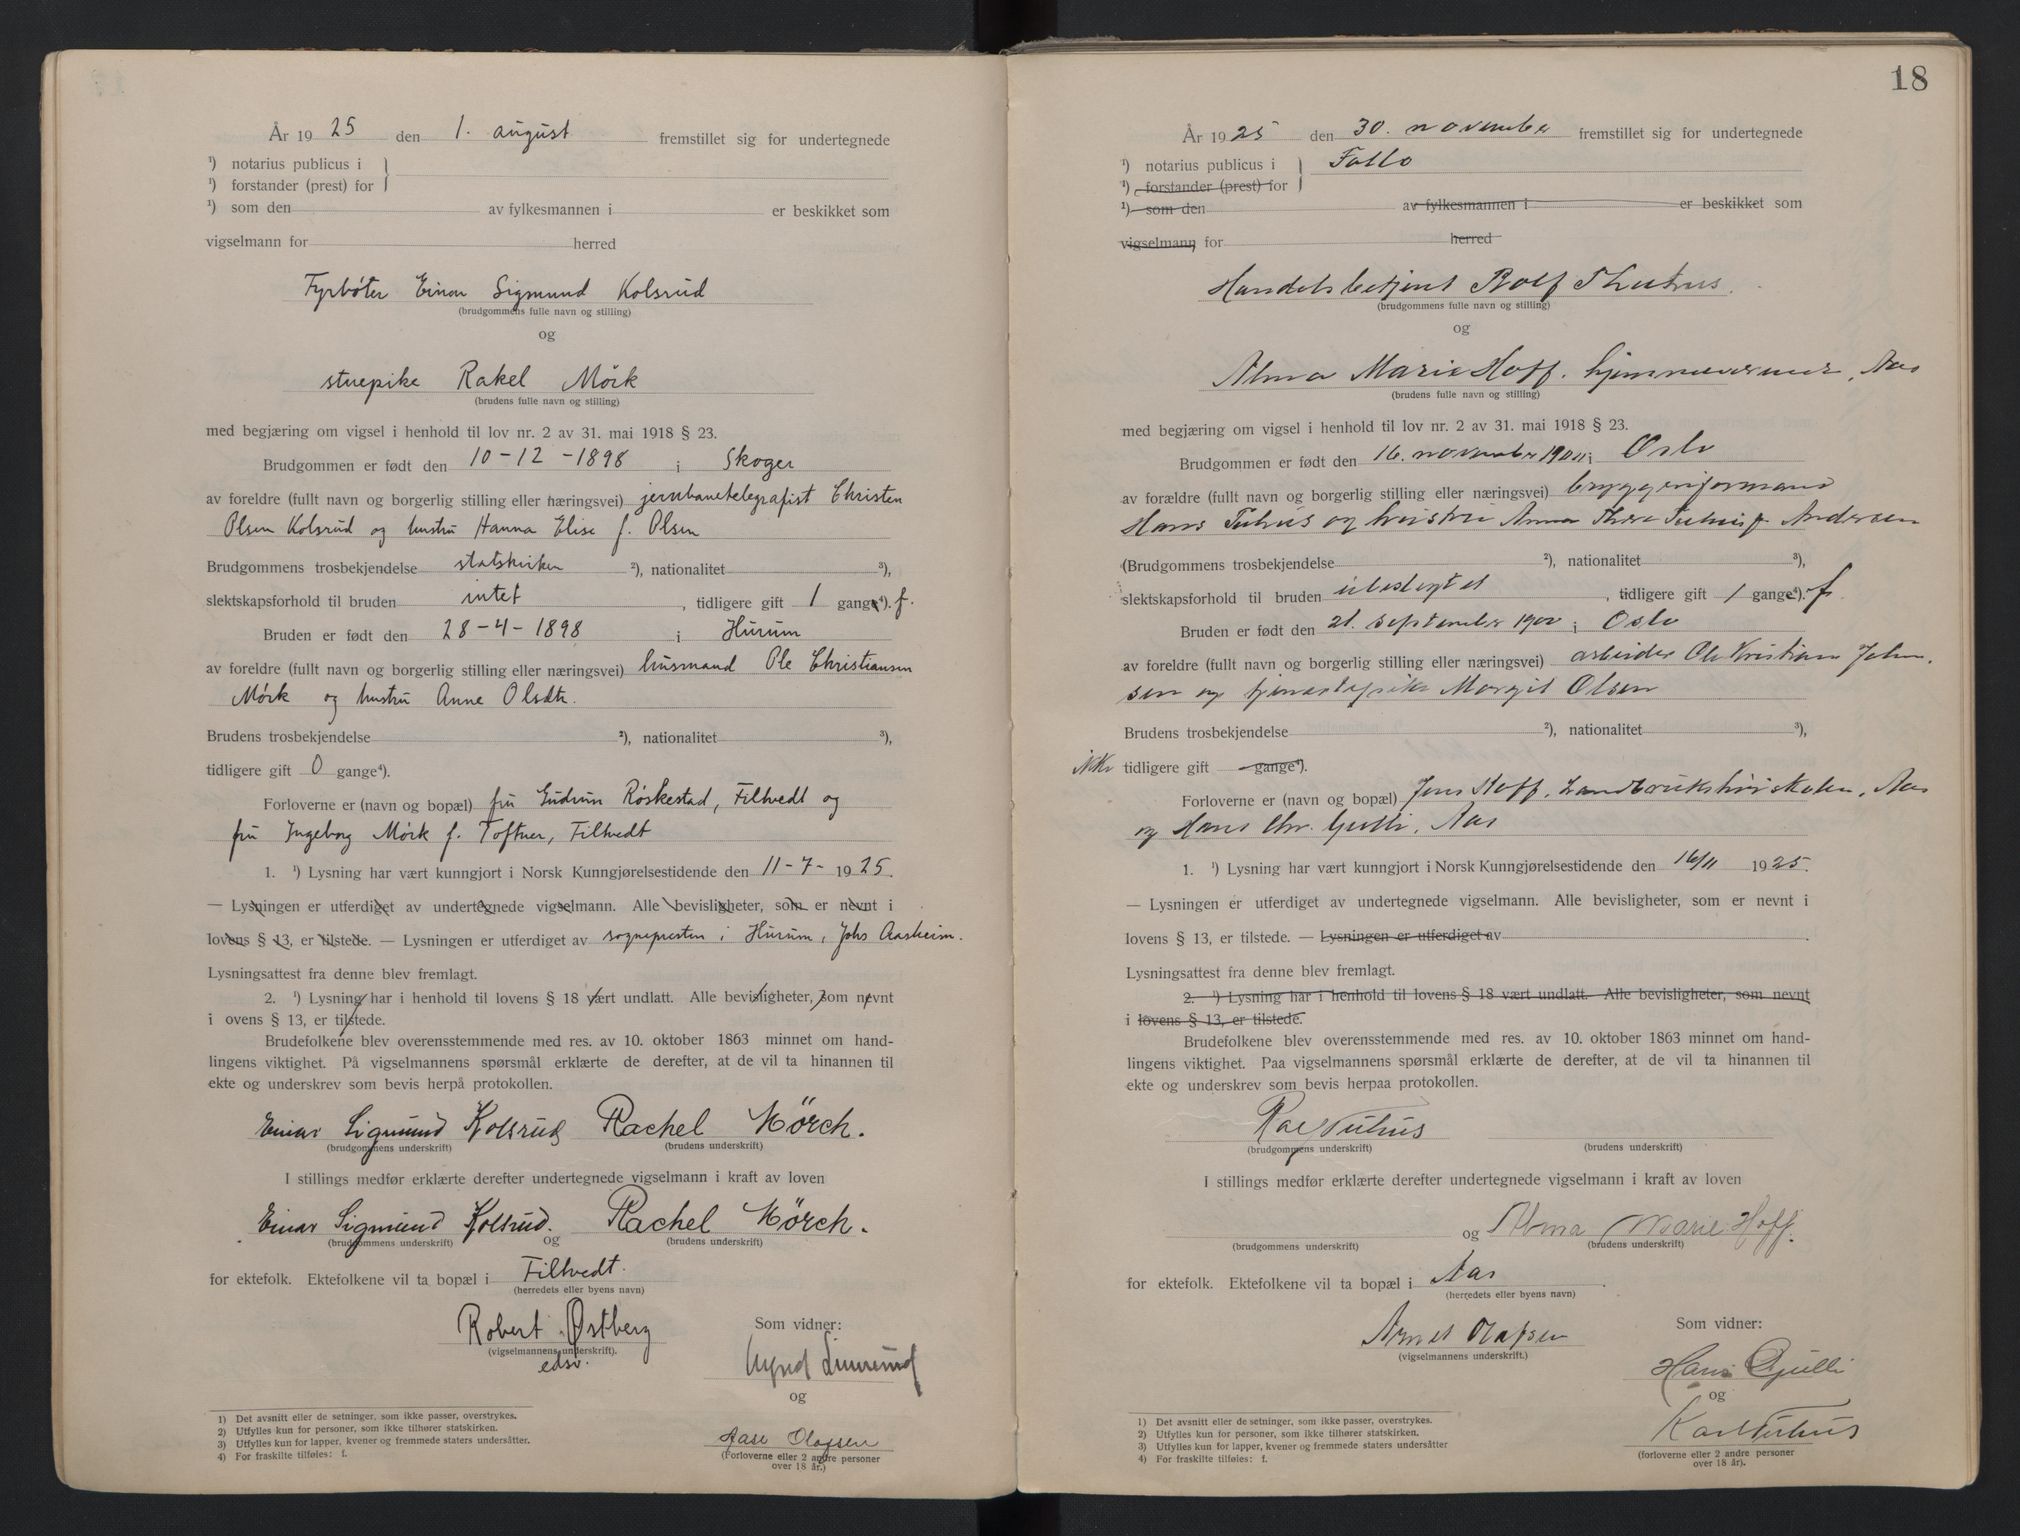 År 1925 den 1. august fremstillet sig for undertegnede
¹) notarius publicus i
¹) forstander (prest) for
¹) som den av fylkesmannen i er beskikket som
vigselmann for herred
Fyrbøter Einar Sigmund Kolsrud
(brudgommens fulle navn og stilling)
og
stuepike Rakel Mörk
(brudens fulle navn og stilling)
med begjæring om vigsel i henhold til lov nr. 2 av 31. mai 1918 § 23.
Brudgommen er født den 10-12-1898 i Skoger
av foreldre (fullt navn og borgerlig stilling eller næringsvei) jernbanetelegrafist Christen
Olsen Kolsrud og hustru Hanna Elise f. Olsen
Brudgommens trosbekjendelse statskirken ²), nationalitet ³),
slektskapsforhold til bruden intet, tidligere gift 1 gange⁴). f.
Bruden er født den 28-4-1898 i Hurum
av foreldre (fullt navn og borgerlig stilling eller næringsvei) husmand Ole Christiansen
Mörk og hustru Anne Olsdtr.
Brudens trosbekjendelse ²), nationalitet ³),
tidligere gift 0 gange⁴).
Forloverne er (navn og bopæl) fru Gudrun Röskestad, Filtvedt og
fru Ingeborg Mörk f. Toftner, Filtvedt
1. ¹) Lysning har vært kunngjort i Norsk Kunngjørelsestidende den 11-7-1925.
— Lysningen er utferdiget av undertegnede vigselmann. Alle bevisligheter, som er nevnt i
lovens § 13, er tilstede. — Lysningen er utferdiget av sognepresten i Hurum, Johs Aasheim.
Lysningsattest fra denne blev fremlagt.
2. ¹) Lysning har i henhold til lovens § 18 vært undlatt. Alle bevisligheter, som nevnt
i ovens § 13, er tilstede.
Brudefolkene blev overensstemmende med res. av 10. oktober 1863 minnet om hand-
lingens viktighet. På vigselmannens spørsmål erklærte de derefter, at de vil ta hinannen til
ekte og underskrev som bevis herpå protokollen.
Einar Sigmund Kolsrud Rachel Mörch.
(brudgommens underskrift) (brudens underskrift)
I stillings medfør erklærte derefter undertegnede vigselmann i kraft av loven
Einar Sigmund Kolsrud. og Rachel Mörch.
(brudgommens underskrift) (brudens underskrift)
for ektefolk. Ektefolkene vil ta bopæl i Filtvedt.
(herredets eller byens navn)
Robert Østberg
(vigselmannens underskrift).
edsv.
Som vidner:
og
Aase Olafsen
(Forloverne eller 2 andre personer
over 18 år.)
1) Det avsnitt eller de setninger, som ikke passer, overstrykes.
2) Utfylles kun for personer, som ikke tilhører statskirken.
3) Utfylles kun for lapper, kvener og fremmede staters undersåtter.
4) For fraskilte tilføies: f.
18
År 1925 den 30. november fremstillet sig for undertegnede
¹) notarius publicus i Follo
¹) forstander (prest) for
¹) som den av fylkesmannen i er beskikket som
vigselmann for herred
Handelsbetjent Rolf Thuhus.
(brudgommens fulle navn og stilling)
og
Alma Marie Hoff, hjemmeværende, Aas
(brudens fulle navn og stilling)
med begjæring om vigsel i henhold til lov nr. 2 av 31. mai 1918 § 23.
Brudgommen er født den 16. november i Oslo
av forældre (fullt navn og borgerlig stilling eller næringsvei) bryggeriformand
Hans Tuhus og hustru Anna Tuhus f. Andersen
(Brudgommens trosbekjendelse ²), nationalitet ³),
slektskapsforhold til bruden ubeslegtet, tidligere gift 1 gange⁴). f.
Bruden er født den 21. september 1900 i Oslo
av foreldre (fullt navn og borgerlig stilling eller næringsvei) arbeider Ole Kristian John-
sen og tjenestepike Margit Olsen
Brudens trosbekjendelse ²), nationalitet ³),
ikke tidligere gift gange⁴).
Forloverne er (navn og bopæl) Jens Hoff, Landbrukshöiskolen, Aas
og Hans Chr. Gulli, Aas
1. ¹) Lysning har vært kunngjort i Norsk Kunngjørelsestidende den 16/11 1925.
— Lysningen er utferdiget av undertegnede vigselmann. Alle bevisligheter, som er nevnt i
lovens § 13, er tilstede. — Lysningen er utferdiget av
Lysningsattest fra denne blev fremlagt.
2. ¹) Lysning har i henhold til lovens § 18 vært undlatt. Alle bevisligheter, som nevnt
i lovens § 13, er tilstede.
Brudefolkene blev overensstemmende med res. av 10. oktober 1863 minnet om hand-
lingens viktighet. Paa vigselmannens spørsmål erklærte de derefter, at de vil ta hinannen til
ekte og underskrev som bevis herpaa protokollen.
Rolf Tuhus
(brudgommens underskrift) (brudens underskrift)
I stillings medfør erklærte derefter undertegnede vigselmann i kraft av loven
og Alma Marie Hoff.
(brudgommens underskrift) (brudens underskrift)
for ektefolk. Ektefolkene vil ta bopæl i Aas
(herredets eller byens navn)
Olafsen
(vigselmannens underskrift.)
Som vidner:
Hans Gulli
og
Karl Tuhus
(forloverne eller 2 andre personer
over 18 år).
1) Det avsnitt eller de setninger, som ikke passer, overstrykes.
2) Utfylles kun for personer, som ikke tilhører statskirken.
3) Utfylles kun for lapper, kvener og fremmede staters undersåtter
4) For fraskilte tilføies: f.